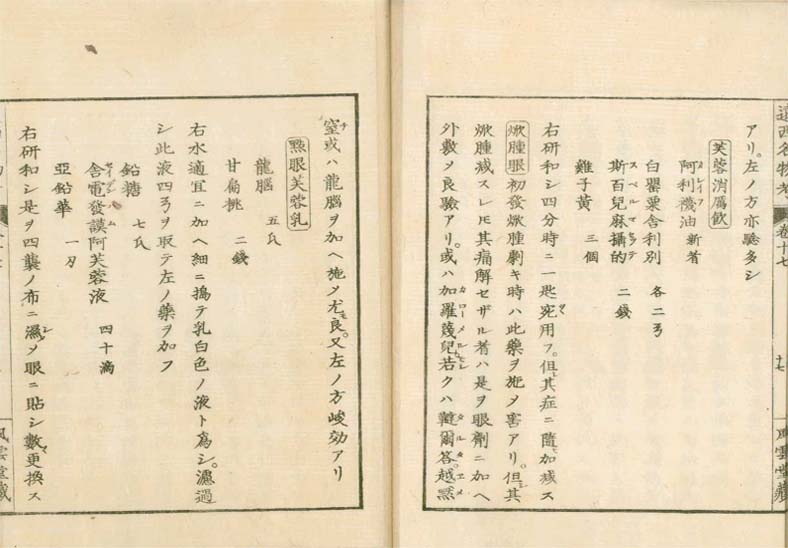 遠西名物考
卷十七
十七
風雲堂藏
アリ。左ノ方亦驗多シ
芙蓉消厲飲
阿利襪油 新者
白罌粟舍利別 各二弓
スペルマセッテ
斯百兒麻攝的 二錢
雞子黃 三個
右研和シ四分時ニ一匙宛用フ。但其症ニ隨加減ス
焮腫眼 初發焮腫劇キ時ハ此藥ヲ施メ害アリ。但其
焮腫減スレモ其痛解セザル者ハ是ヲ眼劑ニ加ヘ
外敷ヲ良驗アリ。或ハ加羅蔑兒若クハ韃爾答。越點
窒或ハ龍腦ヲ加ヘ施メ尤良。又左ノ方峻効アリ
點眼芙蓉乳
龍腦 五氏
甘扁桃 二錢
右水適宜ニ加ヘ細ニ搗テ乳白色ノ液ト爲シ。濾過
シ此液四弓ヲ取テ左ノ藥ヲ加フ
鉛糖 七氏
舎電發謨阿芙蓉液 四十滴
亞鉛華 一刃
右研和シ是ヲ四襲ノ布ニ濕メ眼ニ貼シ數更換ス
風雲堂藏